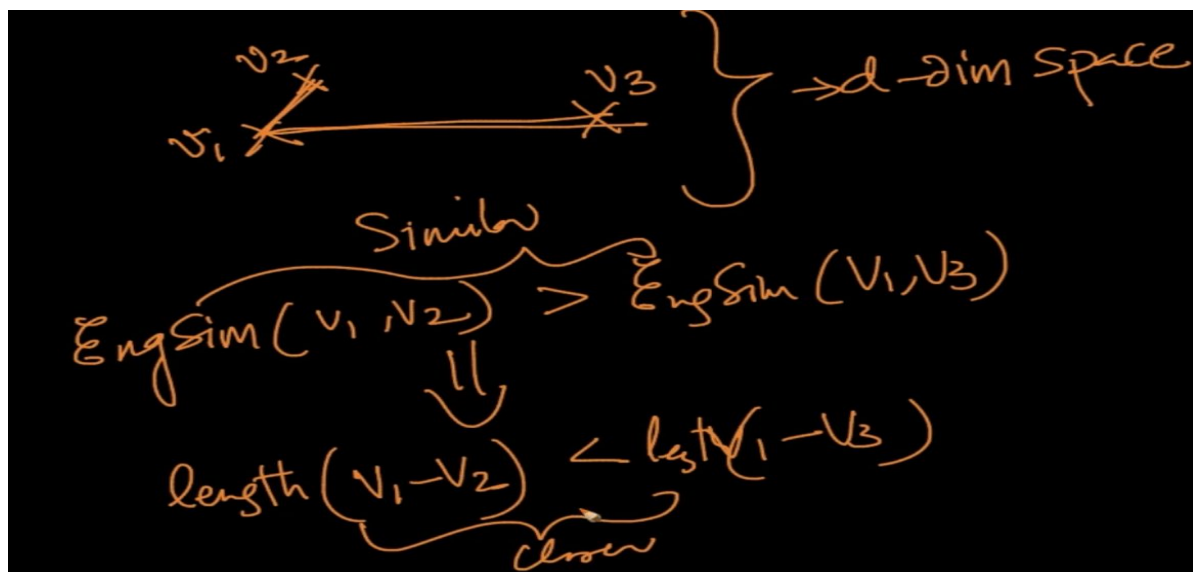 v2
v1
v3
→d-dim space
Similar
EngSim(v1,v2) > EngSim(V1,V3)
⇓
length(v1-v2) < legth(v1-V3)
closer